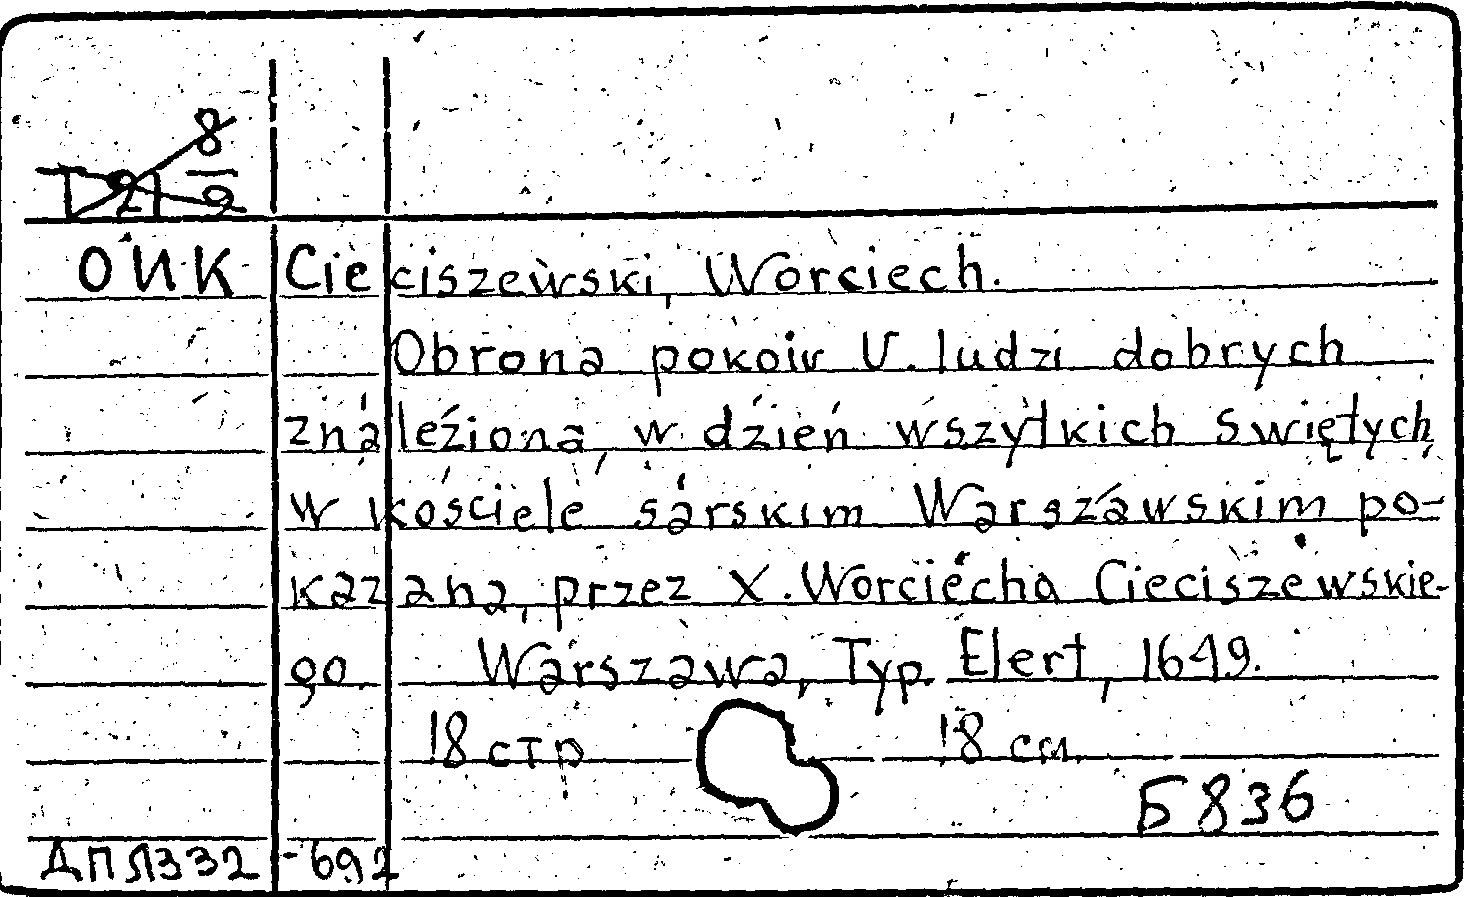 8
ОИК Cieciszewski, Worciech.
Obrona pokoiu U. ludzi dobrych
ználeźiona, w dźień wszytkich Swiętych,
w kosciele sárskim Warszáwskim po-
kazana, przez X. Worciecha Cieciszewskie-
go. Warszawa, Typ. Elert, 1649.
18 стр 18 см.
Б 836
ДПЛ332-692